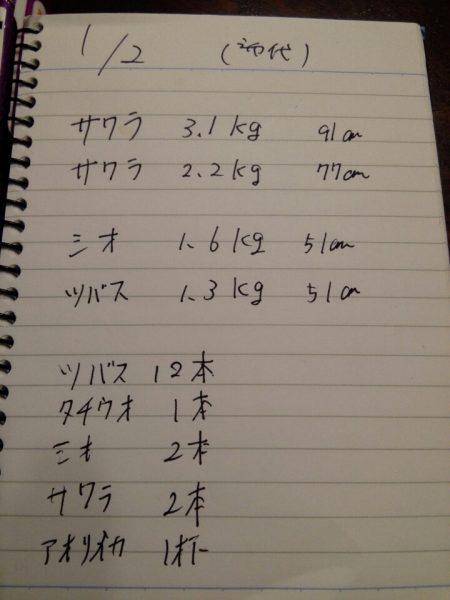 1/2
サワラ 3.1kg 91cm
サワラ 2.2kg 77cm
シオ 1.6kg 51cm
ツバス 1.3kg 51cm
ツバス 12本
タチウオ 1本
シオ 2本
サワラ 2本
アオリイカ 1杯